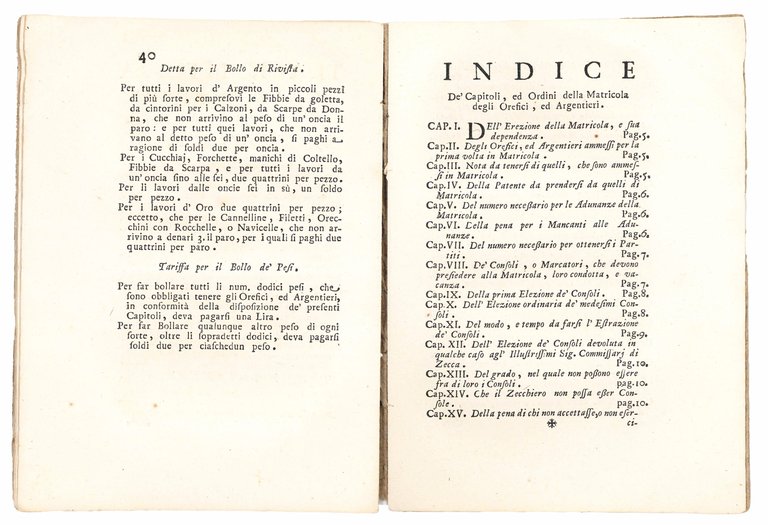 40
Detta per il Bollo di Rivista.
Per tutti i lavori d' Argento in piccoli pezzi
di più forte, compresovi le Fibbie da goletta,
da cintorini per i Calzoni, da Scarpe da Don-
na, che non arrivino al peso di un' oncia il
paro: e per tutti quei lavori, che non arri-
vano al detto peso di un' oncia, si paghi a
ragione di soldi due per oncia.
Per i Cucchiaj, Forchette, manichi di Coltello,
Fibbie da Scarpa, e per tutti i lavori da
un' oncia sino alle sei, due quattrini per pezzo.
Per li lavori dalle oncie sei in sù, un soldo
per pezzo.
Per i lavori d' Oro due quattrini per pezzo;
eccetto, che per le Cannelline, Filetti, Orec-
chini con Rocchelle, o Navicelle, che non ar-
rivino a denari 3. il paro, per i quali si paghi due
quattrini per paro.
Tariffa per il Bollo de' Pesi.
Per far bollare tutti li num. dodici pesi, che
sono obbligati tenere gli Orefici, ed Argentieri,
in conformità della disposizione de' presenti
Capitoli, deva pagarsi una Lira.
Per far Bollare qualunque altro peso di ogni
sorte, oltre li sopradetti dodici, deva pagarsi
soldi due per ciaschedun peso.
INDICE
De' Capitoli, ed Ordini della Matricola
degli Orefici, ed Argentieri.
CAP. I. DEll' Erezione della Matricola, e sua
dipendenza. Pag.5.
Cap.II. Degli Orefici, ed Argentieri ammessi per la
prima volta in Matricola. Pag.5.
Cap.III. Nota da tenersi di quelli, che sono ammes-
si in Matricola. Pag.5.
Cap.IV. Della Patente da prendersi da quelli di
Matricola. Pag.6.
Cap.V. Del numero necessario per le Adunanze della
Matricola. Pag.6.
Cap.VI. Della pena per i Mancanti alle Adu-
nanze. Pag.6.
Cap.VII. Del numero necessario per ottenersi i Par-
titi. Pag.7.
Cap.VIII. De' Consoli, o Marcatori, che devono
presiedere alla Matricola, loro condotta, e va-
canza. Pag.7.
Cap.IX. Della prima Elezione de' Consoli. Pag.8.
Cap.X. Dell' Elezione ordinaria de' medesimi Con-
soli. Pag.8.
Cap.XI. Del modo, e tempo da farsi l' Estrazione
de' Consoli. Pag.9.
Cap.XII. Dell' Elezione de' Consoli devoluta in
qualche caso agl' Illustrissimi Sig. Commissarj di
Zecca. Pag.10.
Cap.XIII. Del grado, nel quale non possono essere
fra di loro i Consoli. pag.10.
Cap.XIV. Che il Zecchiero non possa esser Con-
sole. pag.10.
Cap.XV. Della pena di chi non accettasse, o non eser-
✠ ci-